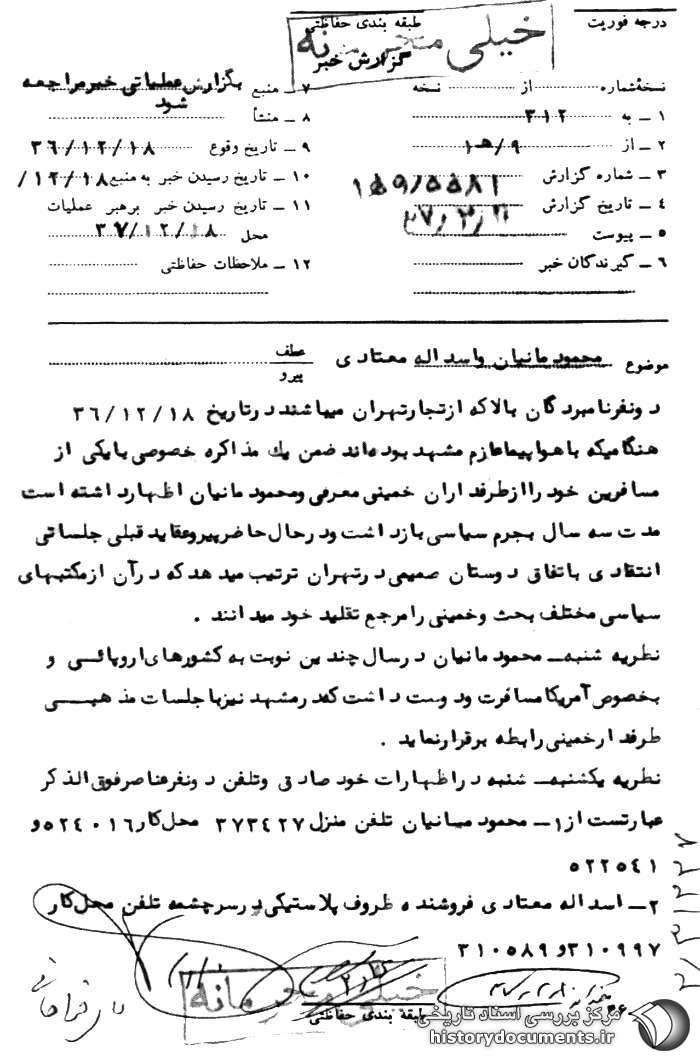 درجه فوریت
طبقه بندی حفاظتی
خیلی محرمانه
گزارش خبر
نسخه شماره از نسخه
۱ ـ به ۳۱۲
۲ ـ از ۹/ه‍ ۱
۳ ـ شماره گزارش ۱۵۹/۵۵۸۱
۴ ـ تاریخ گزارش
۵ ـ پیوست
۶ ـ گیرندگان خبر
۷ ـ منبع بگزارش عملیاتی خبر مراجعه شود
۸ ـ منشأ
۹ ـ تاریخ وقوع ۳۶/۱۲/۱۸
۱۰ ـ تاریخ رسیدن خبر به منبع ۱۲/۱۸/
۱۱ ـ تاریخ رسیدن خبر برهبر عملیات
محل ۳۷/۱۲/۱۸
۱۲ ـ ملاحظات حفاظتی
موضوع محمود مانیان و اسداله معتادی
عطف
پیرو
دونفر نامبردگان بالا که از تجار تهران میباشند در تاریخ ۳۶/۱۲/۱۸
هنگامیکه با هواپیما عازم مشهد بوده اند ضمن یك مذاکره خصوصی با یکی از
مسافرین خود را از طرفداران خمینی معرفی و محمود مانیان اظهار داشته است
مدت سه سال بجرم سیاسی بازداشت و در حال حاضر پیرو عقاید قبلی جلساتی
انتقادی باتفاق دوستان صمیمی در تهران ترتیب میدهد که در آن از مکتبهای
سیاسی مختلف بحث و خمینی را مرجع تقلید خود میدانند .
نظریه شنبه ـ محمود مانیان در سال چندین نوبت به کشورهای اروپائی و
بخصوص آمریکا مسافرت و دوست داشت که در مشهد نیز با جلسات مذهبی
طرفدار خمینی رابطه برقرار نماید .
نظریه یکشنبه ـ شنبه در اظهارات خود صادق و تلفن دونفر عناصر فوق الذکر
عبارتست از ۱ ـ محمود مسانیان تلفن منزل ۳۷۳۴۲۷ محل کار ۵۲۴۰۱۶ و
۵۲۲۵۴۱
۲ ـ اسداله معتادی فروشنده ظروف پلاستیکی در سرچشمه تلفن محل کار
۳۱۰۹۹۷ و ۳۱۰۵۸۹
خیلی محرمانه
طبقه بندی حفاظتی
مرکز بررسی اسناد تاریخی
historydocuments.ir